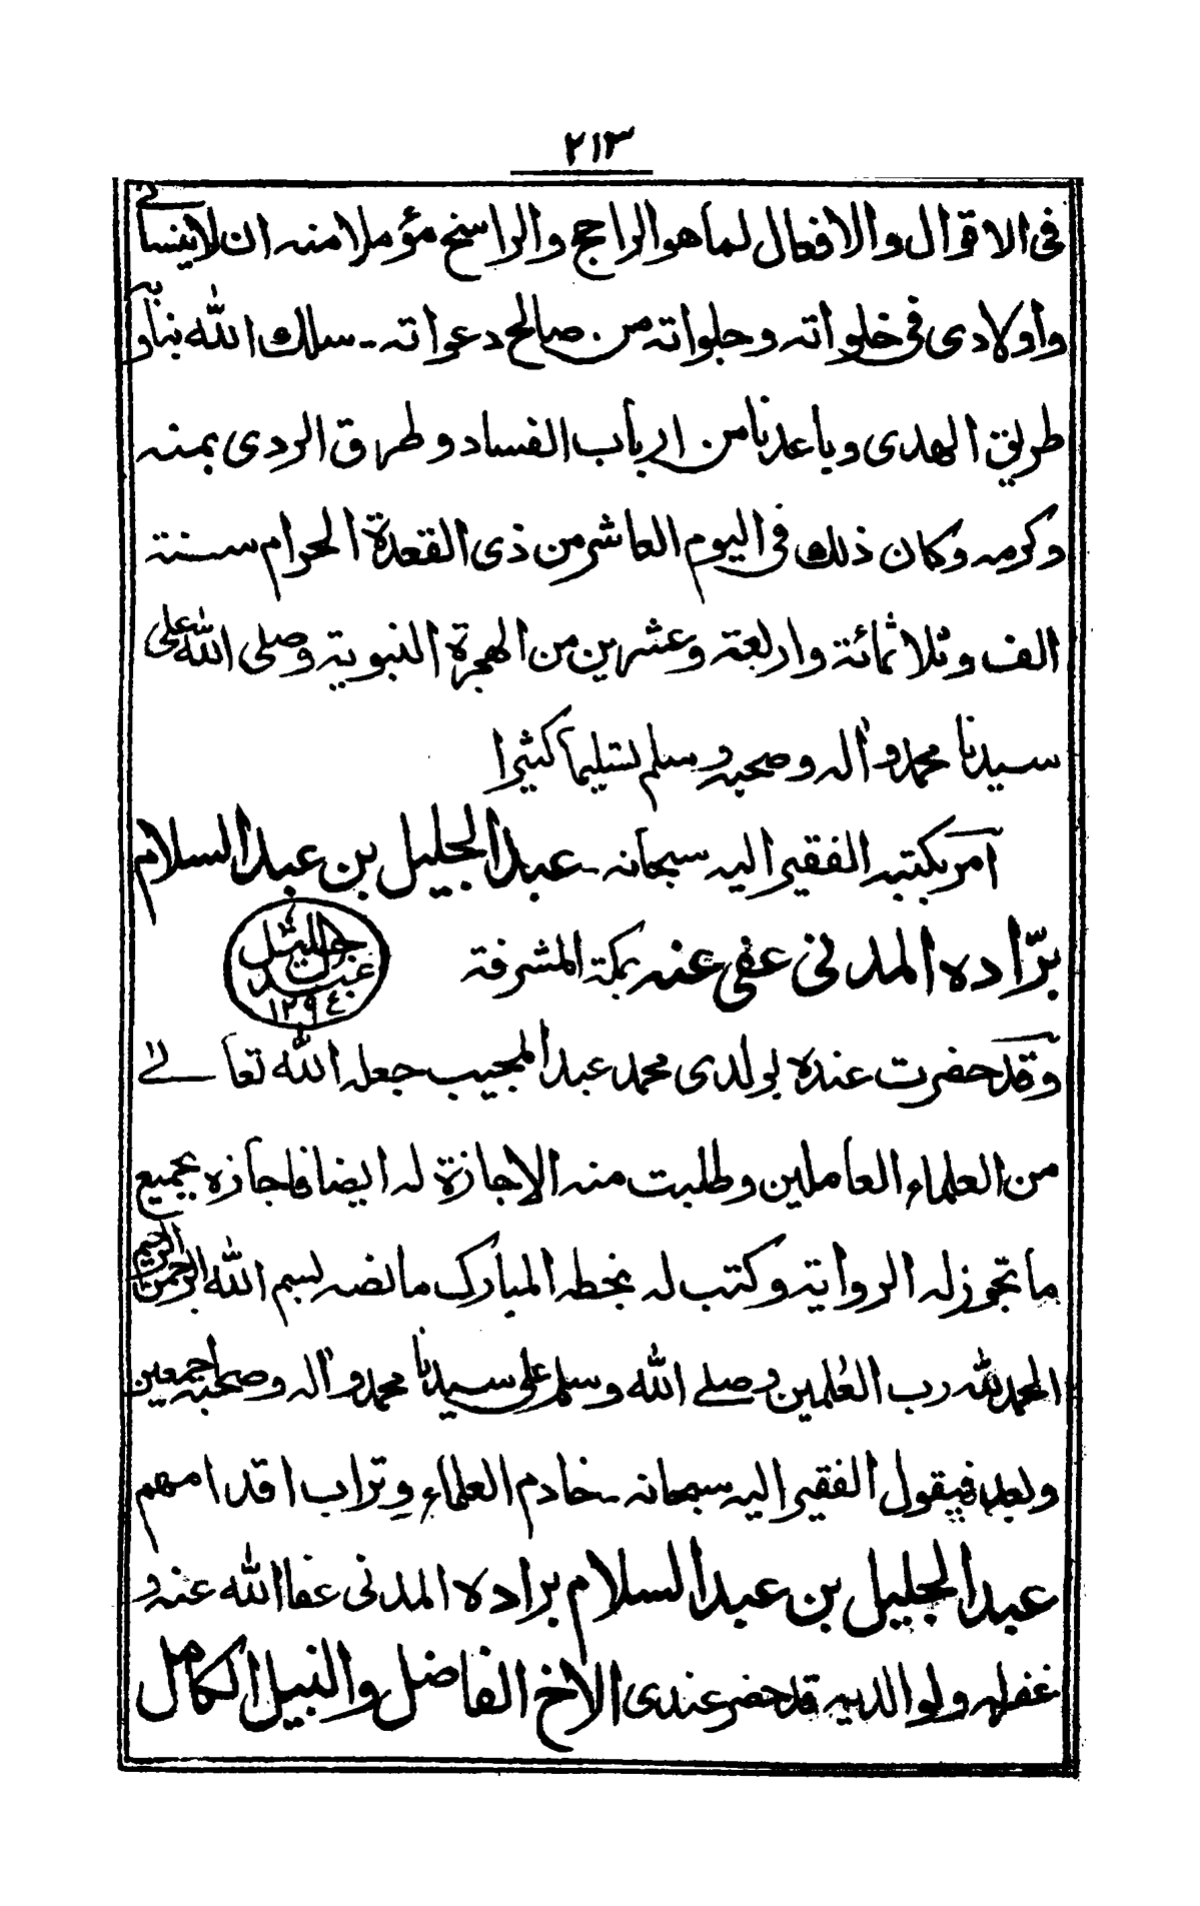 ٢١٣
فى الاقوال والافعال لما هو الراجح والراسخ مؤملا منه ان لا ينسانى
واولادى فى خلواته وجلواته من صالح دعواته - سلك الله بنا وبه
طريق الهدى وباعدنا من ارباب الفساد وطرق الردى بمنه
وكرمه وكان ذلك فى اليوم العاشر من ذى القعدة الحرام سنته
الف وثلاثمائة واربعة وعشرين من الهجرة النبوية وصلى الله على
سيدنا محمد واٰله وصحبه وسلم تسليما كثيرا
آمر بكتبه الفقير اليه سبحانه - عبد الجليل بن عبد السلام
برّاده المدنى عفى عنه بمكة المشرفة
عبد الجليل ١٢٩٤
وقد حضرت عنده بولدى محمد عبد المجيب جعله الله تعالى
من العلماء العاملين وطلبت منه الاجازة له ايضا فاجازه بجميع
ما تجوز له الرواية وكتب له بخطه المبارك ما نصه بسم الله الرحمن الرحيم
الحمد لله رب العٰلمين وصلى الله وسلم على سيدنا محمد واٰله وصحبه اجمعين
وبعد فيقول الفقير اليه سبحانه - خادم العلماء وتراب اقدامهم
عبد الجليل بن عبد السلام براده المدنى عفا الله عنه و
غفر له ولوالديه قد حضر عندى الاخ الفاضل والنبيل الكامل